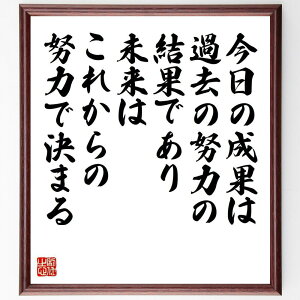 今日の成果は
過去の努力の
結果であり
未来は
これからの
努力で決まる